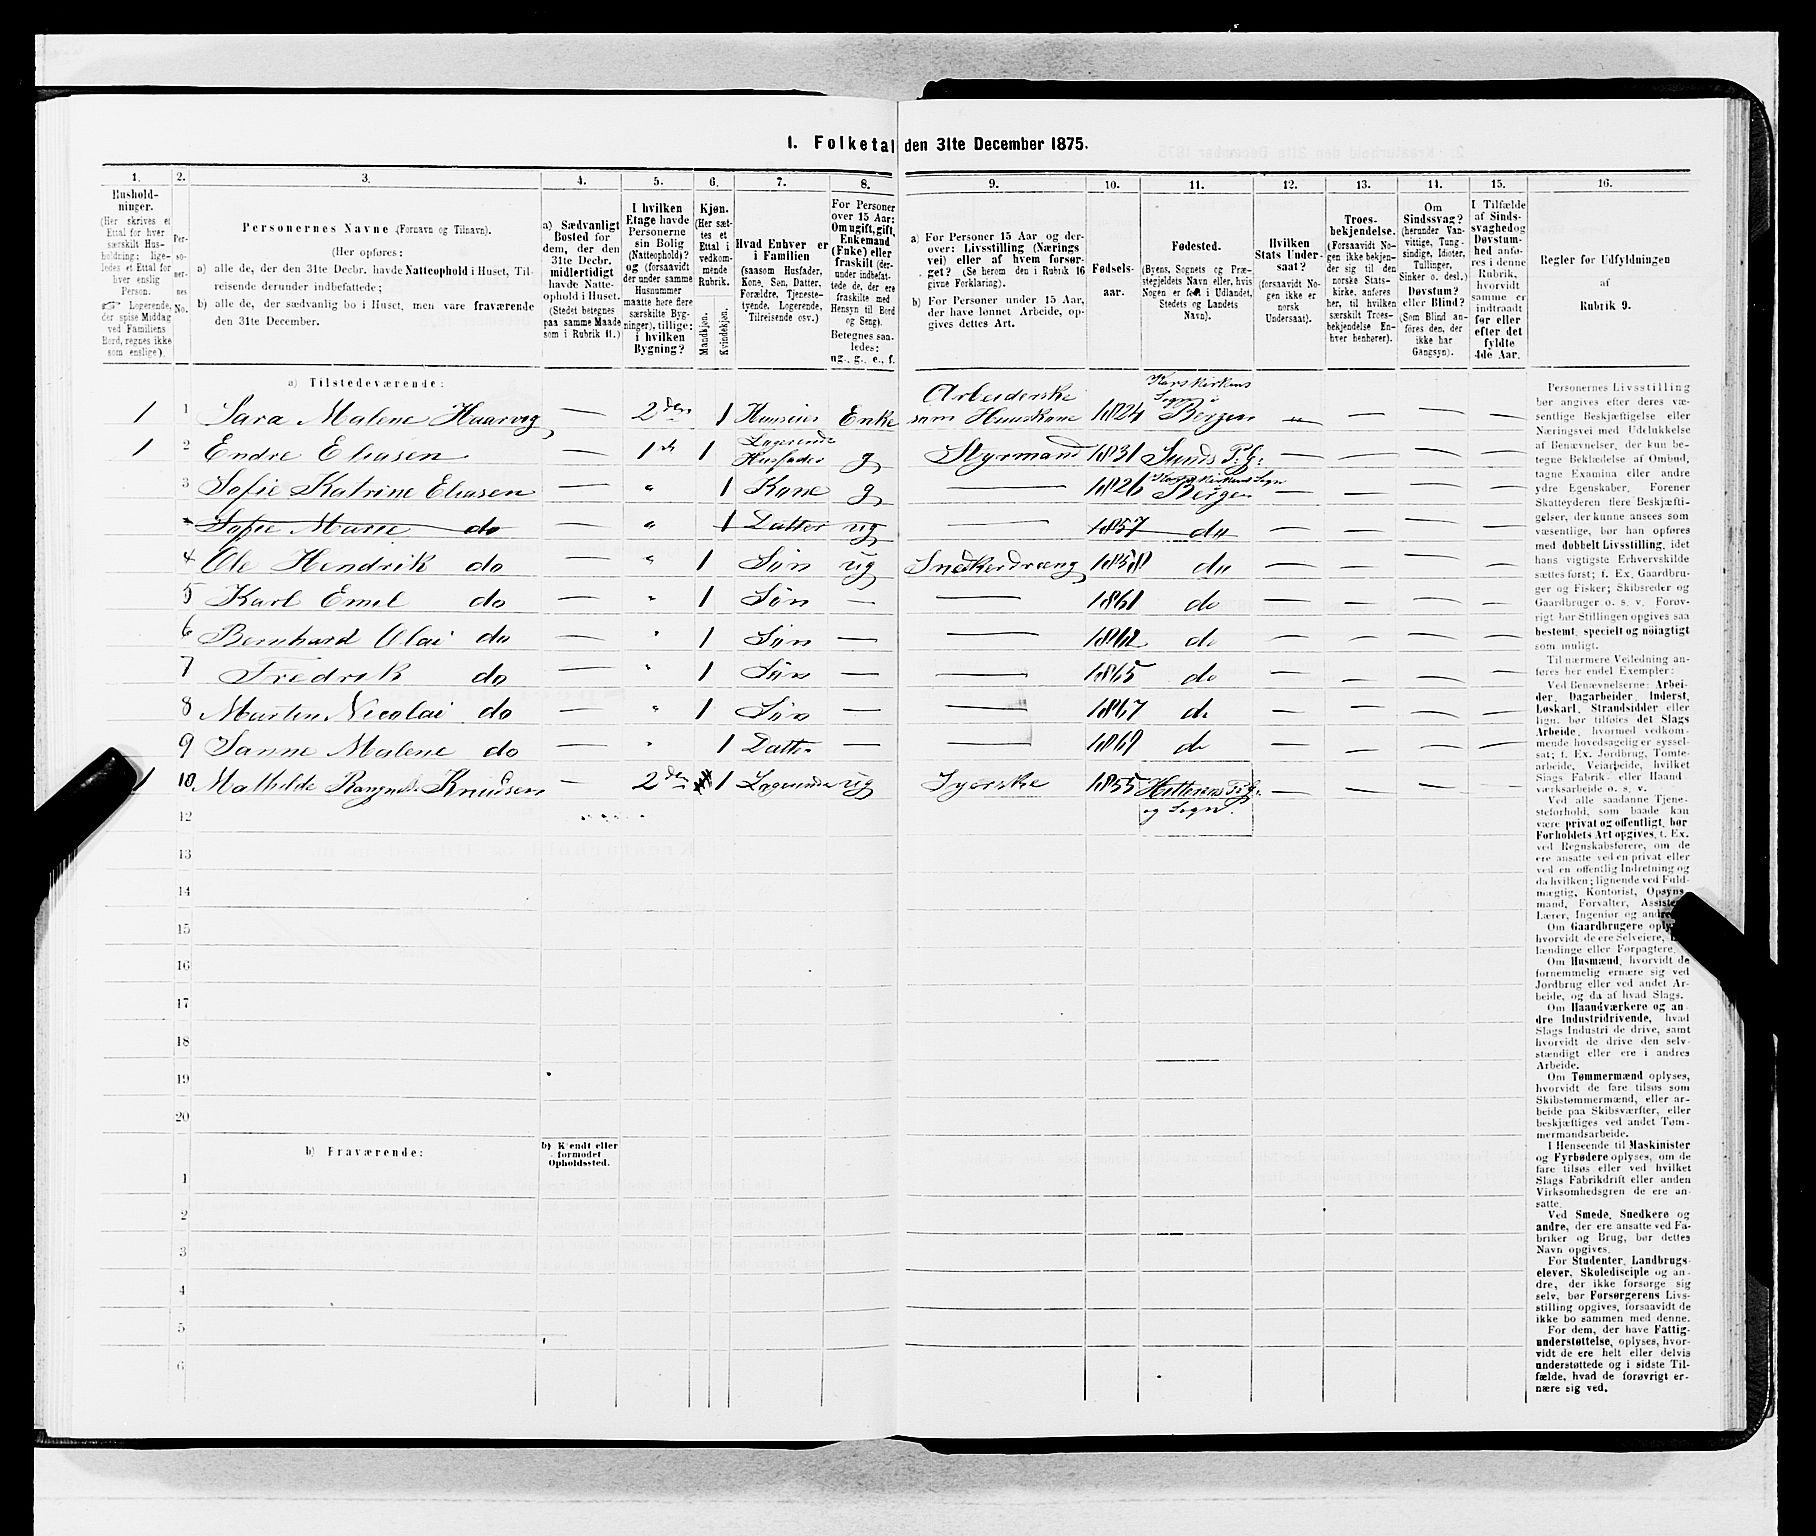 1. Folketal den 31te December 1875.
1.
Hushold-
ninger.
(Her skrives et
Ettal for hver
særskilt Hus-
holdning; lige-
ledes et Ettal for
hver enslig
Person.
☞ Logerende,
der spise Middag
ved Familiens
Bord, regnes ikke
som enslige).
2.
Per-
so-
ner-
nes
No.
3.
Personernes Navne (Fornavn og Tilnavn).
(Her opføres:
a) alle de, der den 31te Decbr. havde Natteophold i Huset, Til-
reisende derunder indbefattede;
b) alle de, der sædvanlig bo i Huset, men vare fraværende
den 31te December.
4.
a) Sædvanligt
Bosted for
dem, der den
31te Decbr.
midlertidigt
havde Natte-
ophold i Huset.
(Stedet betegnes
paa samme Maade
som i Rubrik 11.)
5.
I hvilken
Etage havde
Personerne
sin Bolig
(Natteophold)?
og (forsaavidt
der under samme
Husnummer
maatte høre flere
særskilte Byg-
ninger), tillige:
i hvilken
Bygning?
6.
Kjøn.
(Her sæt-
tes et
Ettal i
vedkom-
mende
Rubrik.
Mandkjøn.
Kvindekjøn.
7.
Hvad Enhver er
i Familien
(saasom Husfader,
Kone, Søn, Datter,
Forældre, Tjeneste-
tyende, Logerende,
Tilreisende osv.)
8.
For Personer
over 15 Aar:
Om ugift, gift,
Enkemand
(Enke) eller
fraskilt (der-
under indbefat-
tede de, der ere
fraskilte med
Hensyn til Bord
og Seng).
Betegnes saa-
ledes:
ug., g., e., f.
9.
a) For Personer 15 Aar og der-
over: Livsstilling (Nærings
vei) eller af hvem forsør-
get? (Se herom den i Rubrik 16
givne Forklaring).
b) For Personer under 15 Aar,
der have lønnet Arbeide, op-
gives dettes Art.
10.
Fødsels-
aar.
11.
Fødested.
(Byens, Sognets og Præ-
stegjeldets Navn eller, hvis
Nogen er født i Udlandet,
Stedets og Landets
Navn).
12.
Hvilken
Stats Under-
saat?
(forsaavidt No-
gen ikke er
norsk
Undersaat).
13.
Troes-
bekjendelse.
(Forsaavidt No-
gen ikke bekjen-
der sig til den
norske Stats-
kirke, anføres
her, til hvilken
særskilt Troes-
bekjendelse En-
hver henhører).
14.
Om
Sindssvag?
(herunder Van-
vittige, Tung-
sindige, Idioter,
Tullinger,
Sinker o. desl.)
Døvstum?
eller Blind?
(Som Blind an-
føres den, der
ikke har
Gangsyn).
15.
I Tilfælde
af Sinds-
svaghed og
Døvstum-
hed anfø-
res i denne
Rubrik,
hvorvidt
samme er
indtraadt
før eller
efter det
fyldte
4de Aar.
16.
Regler for Udfyldningen
af
Rubrik 9.
a) Tilstedeværende:
1 1 Sara Malene Haarvig — 2den 1 Huuseier Enke Arbeiderske som Huuskone 1824 Korskirkens Sogn i Bergen — — — —
1 2 Endre Eliasen — 1ste 1 Logerende Husfader g Styrmand 1831 Sunds P.G. — — — —
3 Sofie Katrine Eliasen — " 1 Kone g — 1826 Korskirkens Sogn Bergen — — — —
Sofie Marie do — " 1 Datter ug — 1857 do — — — —
4 Ole Hendrik do — " 1 Søn ug Snedkerdræng 1858 do — — — —
5 Karl Emil do — " 1 Søn — — 1861 do — — — —
6 Bernhard Olai do — " 1 Søn — — 1862 do — — — —
7 Fredrik do — " 1 Søn — — 1865 do — — — —
8 Martin Nicolai do — " 1 Søn — — 1867 do — — — —
9 Sanne Malene do — " 1 Datter — — 1869 do — — — —
1 10 Mathilde Knudsen — 2den 1 Logerende ug Syerske 1855 Hitterens P.G. og Sogn. — — — —
12
13
14
15
16
17
18
19
20
b) Fraværende:
b) Kjendt eller
formodet
Opholdssted.
1
2
3
4
5
6
Personernes Livsstilling
bør angives efter deres væ-
sentlige Beskjæftigelse eller
Næringsvei med Udelukkelse
af Benævnelser, der kun be-
tegne Beklædelse af Ombud,
tagne Examina eller andre
ydre Egenskaber. Forener
Skatteyderen flere Beskjæfti-
gelser, der kunne ansees som
væsentlige, bør han opføres
med dobbelt Livsstilling, idet
hans vigtigste Erhvervskilde
sættes først; f. Ex. Gaardbru-
ger og Fisker; Skibsreder og
Gaardbruger o. s. v. Forøv-
rigt bør Stillingen opgives saa
bestemt, specielt og nöiagtigt
som muligt.
Til nærmere Veiledning an-
føres her endel Exempler:
Ved Benævnelserne: Arbei-
der, Dagarbeider, Inderst,
Løskarl, Strandsidder eller
lign. bør tilføies det Slags
Arbeide, hvormed vedkom-
mende hovedsagelig er syssel-
sat; f. Ex. Jordbrug, Tomte-
arbeide, Veiarbeide, hvilket
Slags Fabrik- eller Haand-
værksarbeide o. s. v.
Ved alle saadanne Tjene-
steforhold, som baade kan
være privat og offentligt, bør
Forholdets Art opgives, f. Ex.
ved Regnskabsførere, om de
ere ansatte ved en privat eller
ved en offentlig Indretning og
da hvilken; lignende ved Fuld-
mægtig, Kontorist, Opsyns-
mand, Forvalter, Assistent,
Lærer, Ingeniør og andre.
Om Gaardbrugere oplyses,
hvorvidt de ere Selveiere,
lændinge eller Forpagtere.
Om Husmænd, hvorvidt de
fornemmelig ernære sig ved
Jordbrug eller ved andet Ar-
beide, og da af hvad Slags.
Om Haandværkere og an-
dre Industridrivende, hvad
Slags Industri de drive, samt
hvorvidt de drive den selv-
stændigt eller ere i andres
Arbeide.
Om Tømmermænd oplyses,
hvorvidt de fare tilsøs som
Skibstømmermænd, eller ar-
beide paa Skibsværfter, eller
beskjæftiges ved andet Tøm-
mermandsarbeide.
I Henseende til Maskinister
og Fyrbødere oplyses, om de
fare tilsøs eller ved hvilket
Slags Fabrikdrift eller anden
Virksomhedsgren de ere an-
satte.
Ved Smede, Snedkere og
andre, der ere ansatte ved Fa-
briker og Brug, bør dettes
Navn opgives.
For Studenter, Landbrugs-
elever, Skoledisciple og an-
dre, der ikke forsørge sig
selv, bør Forsørgerens Livs-
stilling opgives, forsaavidt de
ikke bo sammen med denne.
For dem, der have Fattig-
understøttelse, oplyses, hvor-
vidt de ere helt eller delvis
understøttede og i sidste Til-
fælde, hvad de forøvrigt er-
nære sig ved.